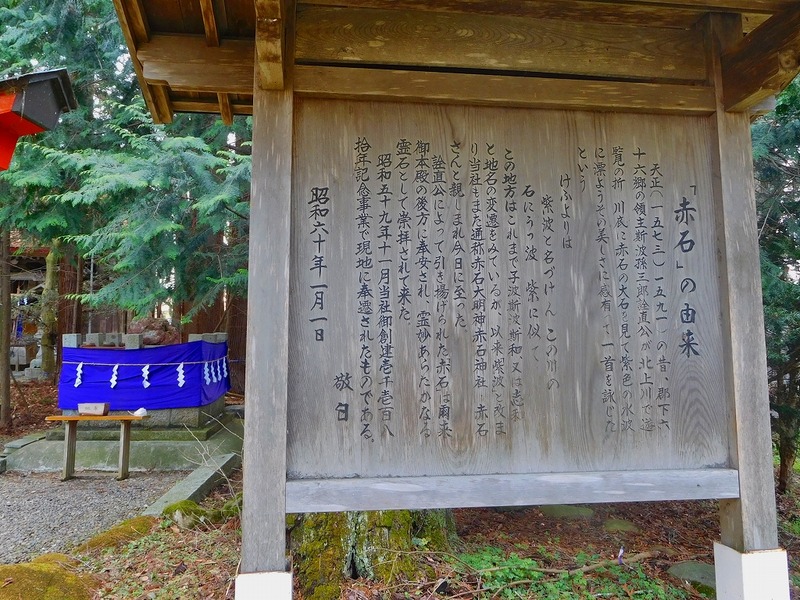 「赤石」の由来
天正(一五七三〜一五九一)の昔、郡下六
十六郷の領主斯波孫三郎詮直公が北上川で遊
覧の折 川底に赤石の大石を見て紫色の水波
に漂ようその美しさに感有って一首を詠じた
という
けふよりは
紫波と名づけん この川の
石にうつ波 紫に似て
この地方はこれまで子波斯波斯和 又は志和
と地名の変遷をみているが 以来紫波と改ま
り当社もまた通称赤石大明神赤石神社 赤石
さんと親しまれ今日に至った
詮直公によって引き揚げられた赤石は爾来
御本殿の後方に奉安され 霊妙あらたかなる
霊石として崇拝されて来た
昭和五十九年十一月当社御創建壱千壱百八
拾年記念事業で現地に奉遷されたものである。
昭和六十年一月一日
敬白